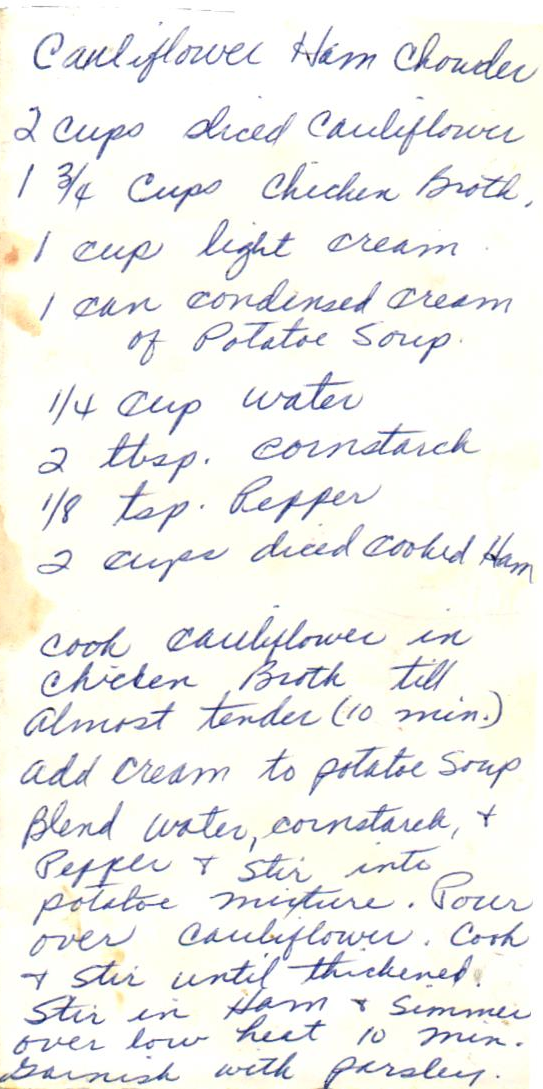 Cauliflower Ham Chowder
2 cups sliced Cauliflower
1 3/4 Cups Chicken Broth.
1 cup light cream
1 can condensed cream
of Potatoe Soup.
1/4 cup water
2 tbsp. cornstarch
1/8 tsp. Pepper
2 cups diced cooked Ham
Cook cauliflower in
Chicken Broth till
Almost tender (10 min.)
Add Cream to potatoe Soup
Blend water, cornstarch, &
Pepper & stir into
potatoe mixture. Pour
over cauliflower. Cook
& stir until thickened.
Stir in Ham & Simmer
over low heat 10 min.
Garnish with parsley.